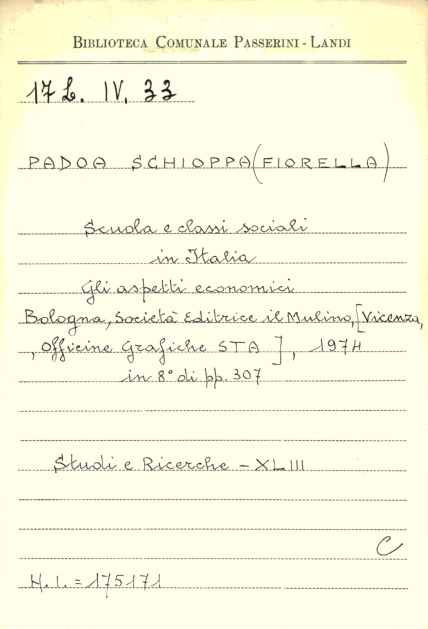 BIBLIOTECA COMUNALE PASSERINI-LANDI
17 L. IV. 33
PADOA SCHIOPPA (FIORELLA)
Scuola e classi sociali
in Italia
Gli aspetti economici
Bologna, Società Editrice il Mulino, [Vicenza,
, Officine Grafiche STA ], 1974
in 8° di pp. 307
Studi e Ricerche - XLIII
C
H. I. = 175171